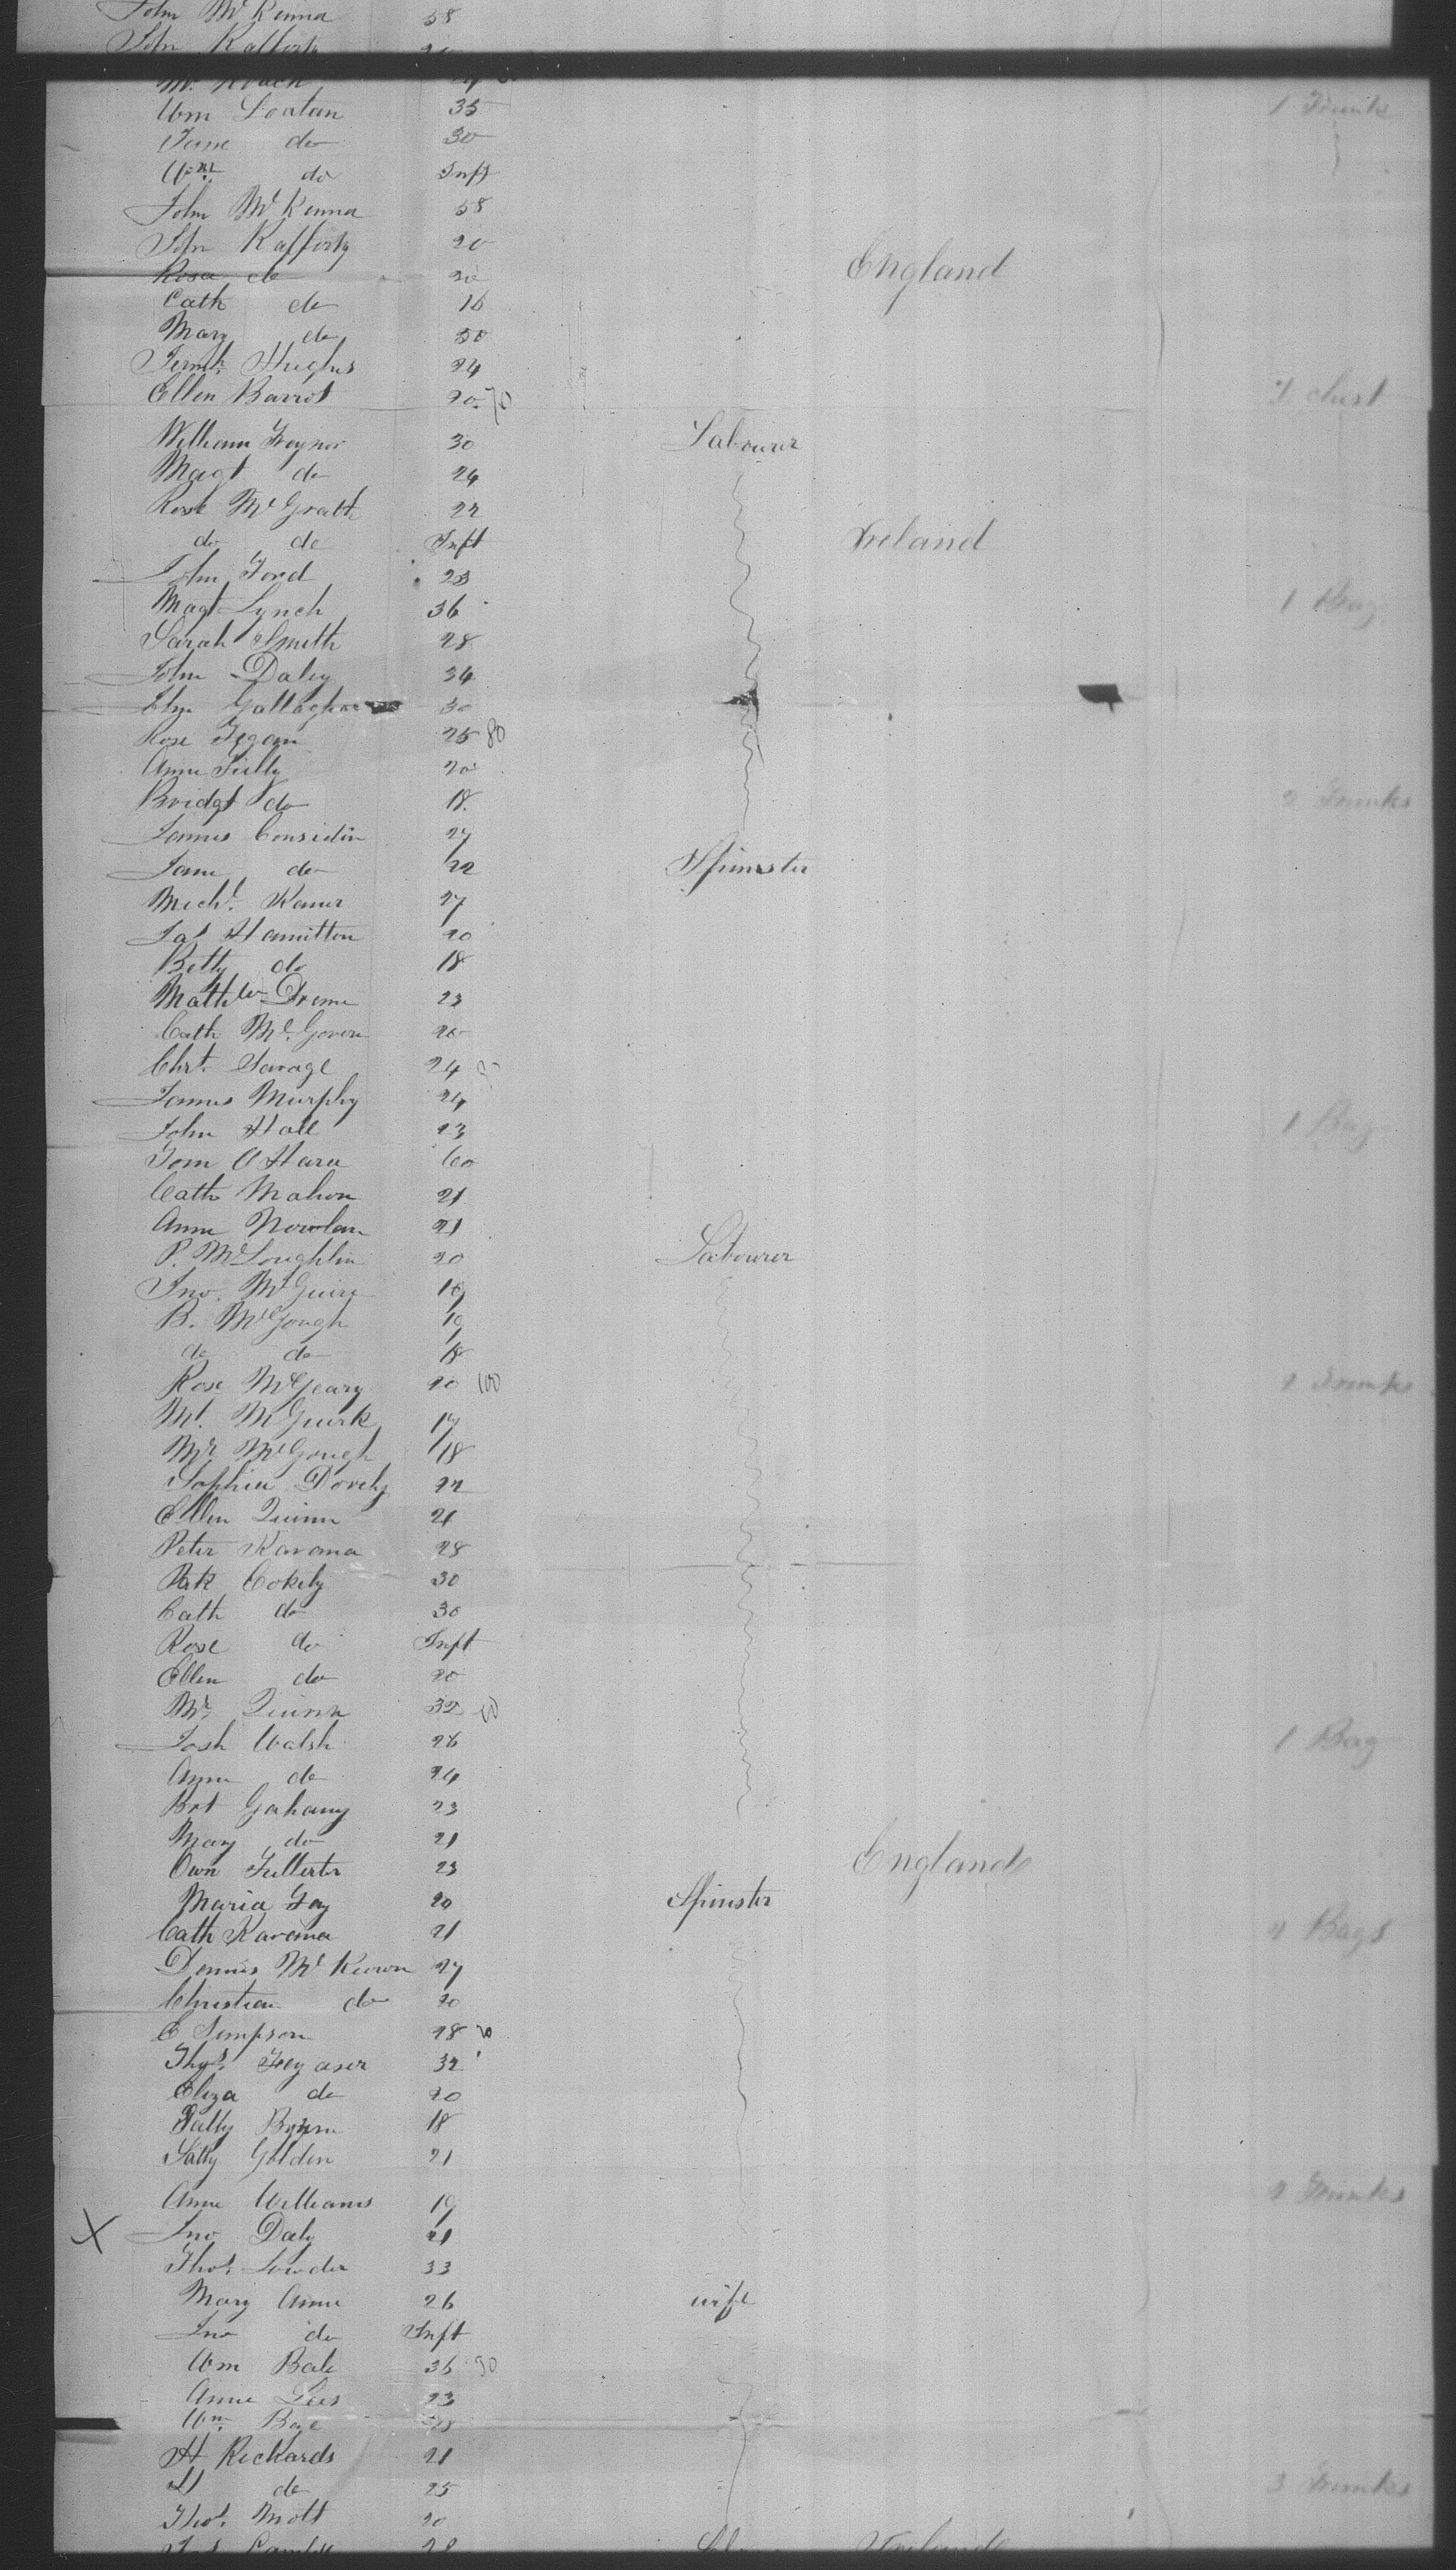 John McKenna 58
John Rafferty 20
M. Roach
Wm Loatan 35 1 Trunk
Jane do 30
Wm do Inft
John McKenna 58
John Rafferty 20
England
Rosa do 20
Cath do 16
Mary do 50
Hughes 24
Ellen Barrot 20 70 chest
William 30 Labourer
Magt do 24
Rose McGrath 22
do do Inft Ireland
John Ford 23
Magt Lynch 36 1 Bag
Sarah Smith 28
John Daley 34
Gallagher 30
Rose Fegan 25 80
Anne 20
Bridgt do 18 2 Trunks
James Considin 27
Jane do 22 Spinster
Michl. Kaner 27
Jas Hamilton 20
Betty do 18
Mathew 23
Cath McGovern 20
Chrt. Savage 24
James Murphy 24
John Hall 23 1 Bag
Tom O Hara 60
Cath Mahon 21
Anne Nowlan 21
P. McLoughlin 20 Labourer
Jno. McGuire 19
B. McGough 19
do do 18
Rose McGeary 20 100 2 Trunks
Mt. McGuirk 17
Mr McGough 18
Sophia 22
Ellen Quinn 21
Peter Kavana 28
Pak Cokely 30
Cath do 30
Rose do Inft
Ellen do 20
Mr. Quinn 32 10
Josh Walsh 26 1 Bag
Anne do 24
Brt Gahany 23
Mary do 21
Own Fullerter 23 England
Maria Fay 20 Spinster
Cath Kavana 21 Bags
Dennis McKeown 27
Christian do 20
E Simpson 28 20
32
Eliza do 20
Sally 18
Sally Golden 21
Anne Williams 19 2 Trunks
X Jno Daly 21
Thos. Lowder 33
Mary Anne 26 wife
Jno do Inft
Wm Bale 36 30
Anne Lees 23
Wm. Bale
H Rickards 21
do 25 3 Trunks
Thos. Mott 20
28 Ireland